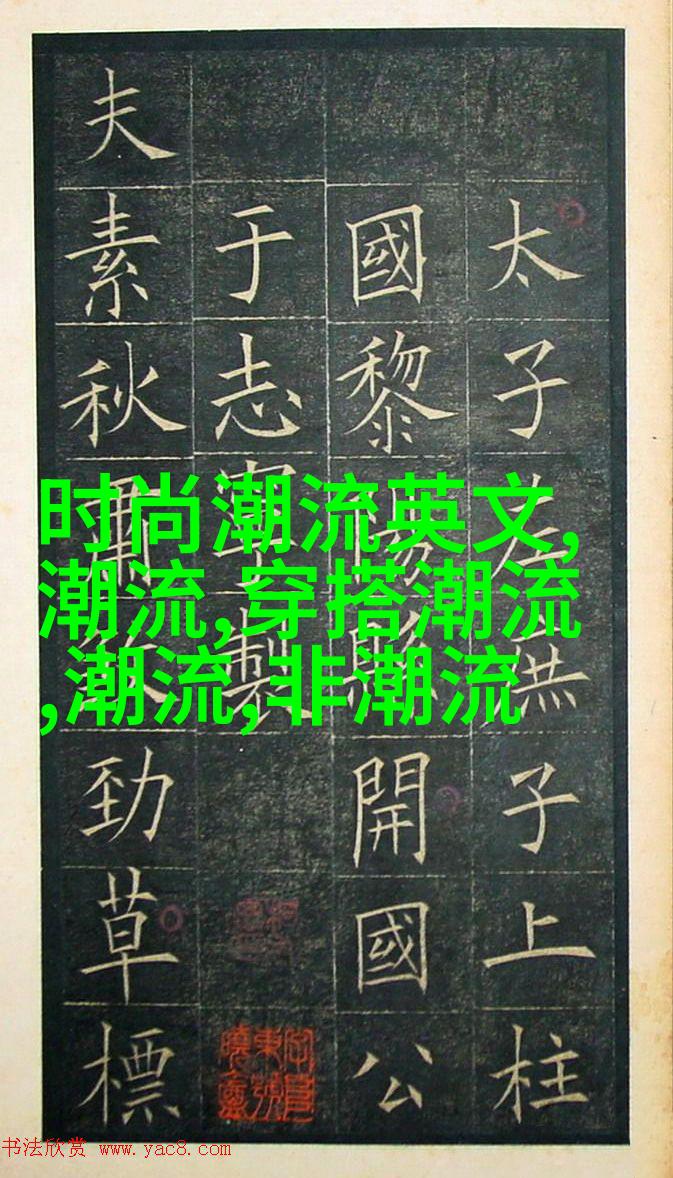 太子左庶子上柱
國黎陽開國公
于志寧製
夫素秋肅勁草標
时尚潮流英文,
潮流,穿搭潮流
,潮流,非潮流
书法欣赏 www.yac8.com